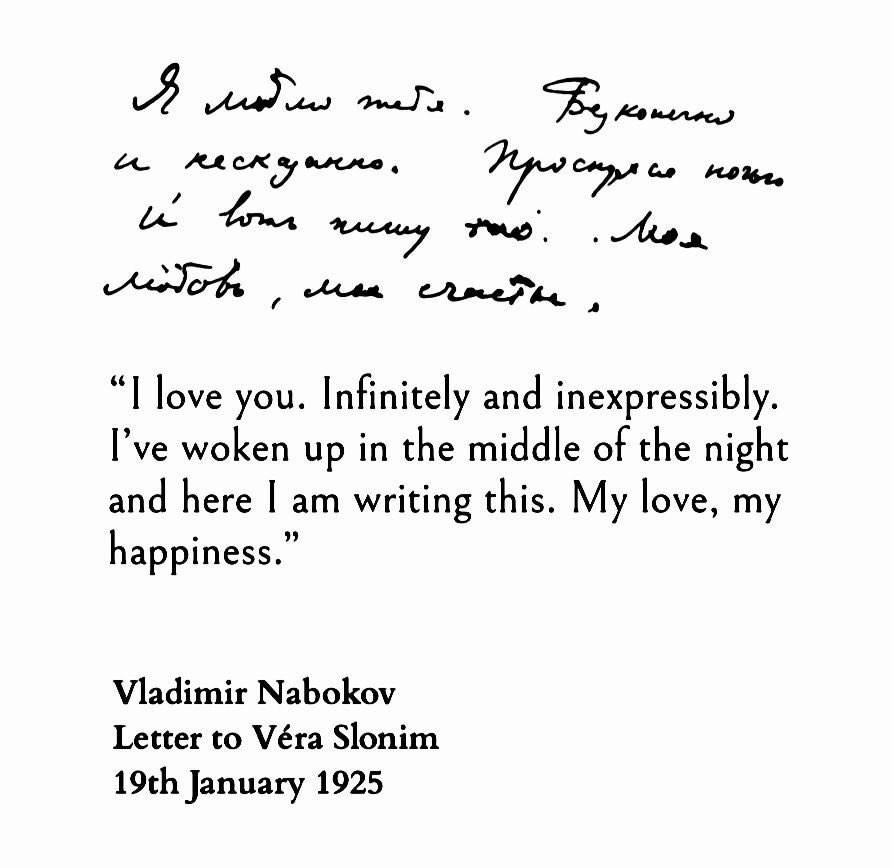 Я люблю тебя. Безконечно
и несказанно. Проснулся ночью
и вотъ пишу это. Моя
любовь, мое счастье.
“I love you. Infinitely and inexpressibly.
I’ve woken up in the middle of the night
and here I am writing this. My love, my
happiness.”
Vladimir Nabokov
Letter to Véra Slonim
19th January 1925